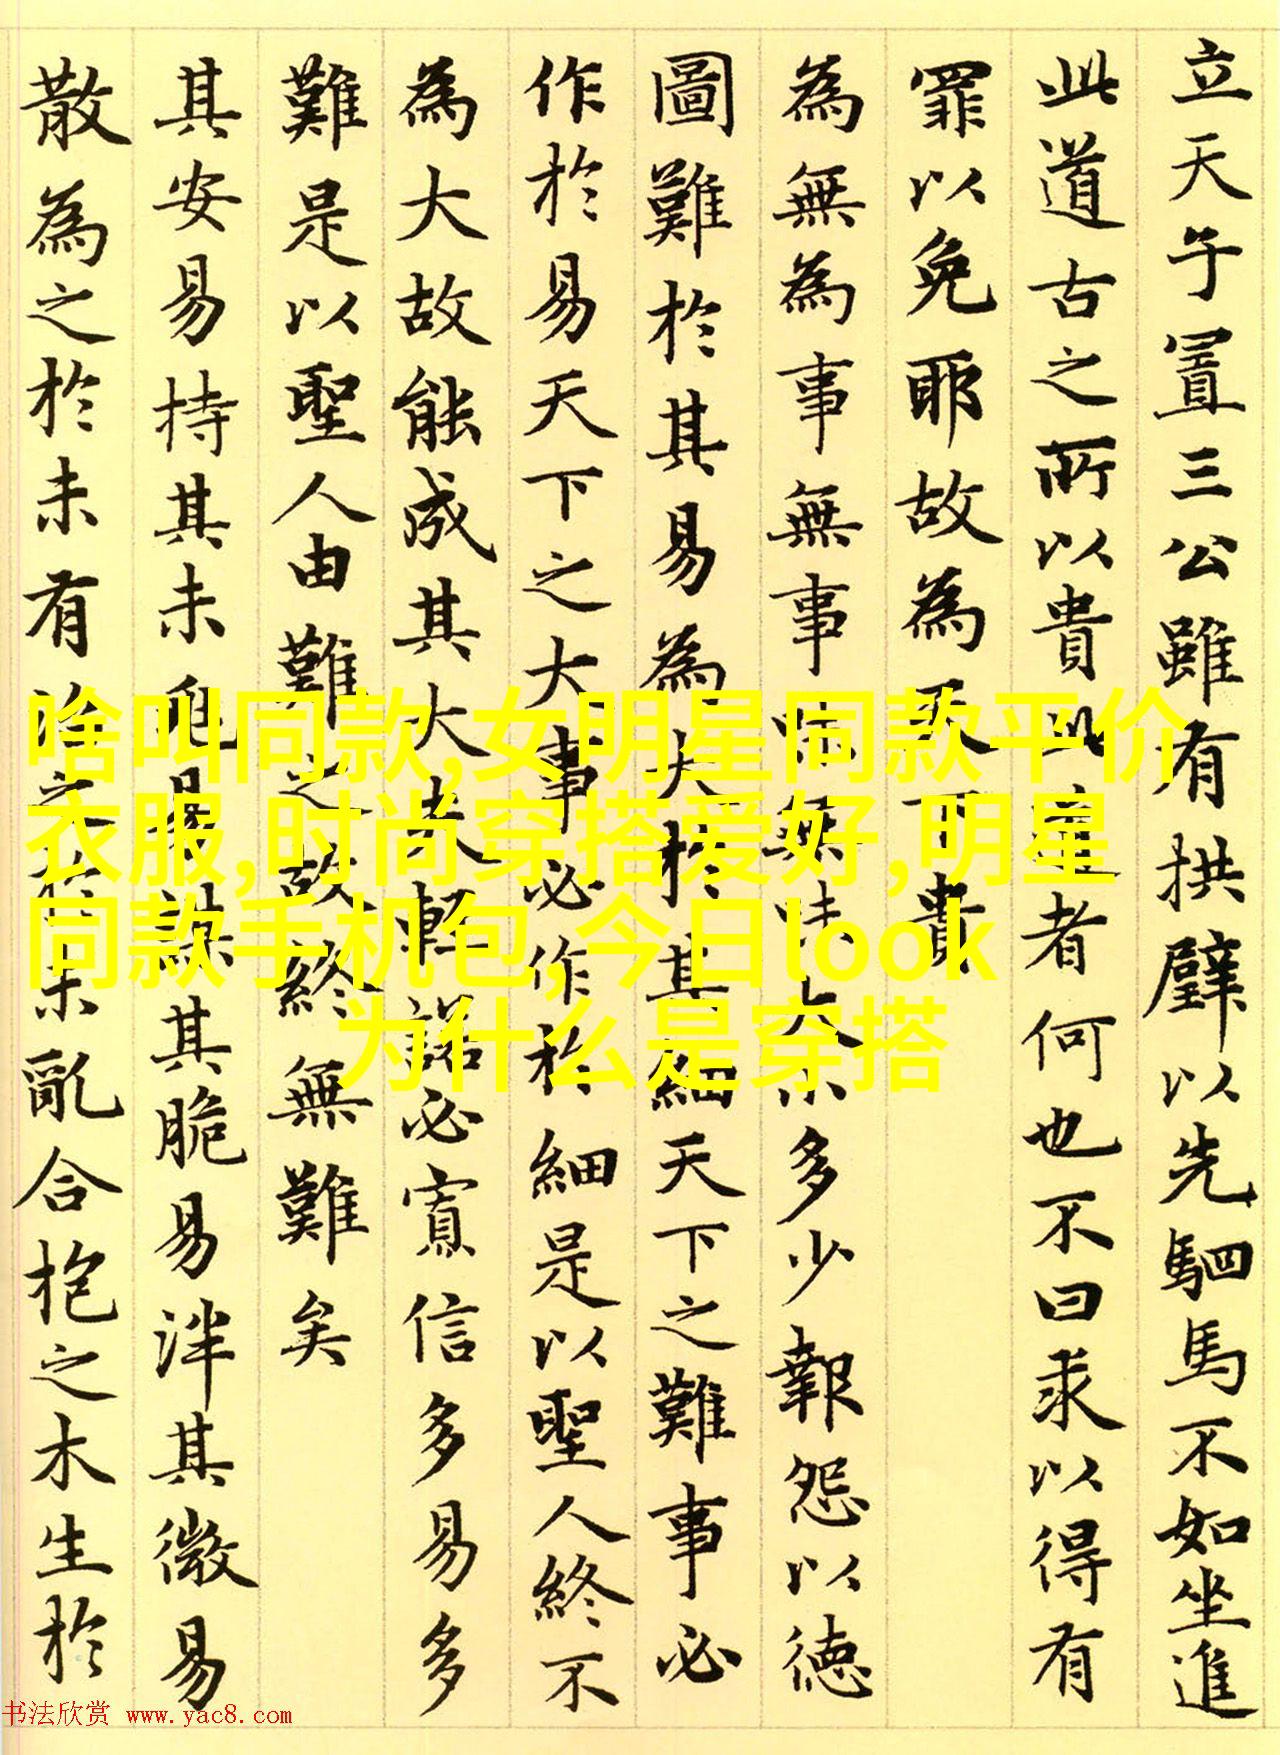 立天子置三公雖有拱璧以先駟馬不如坐進
此道古之所以貴此道者何也不曰求以得有
罪以免耶故為天下貴
為無為事無事味無味大小多少報怨以德
圖難於其易為大於其細天下之難事必
作於易天下之大事必作於細是以聖人終不
為大故能成其大夫輕諾必寡信多易多
難是以聖人由難之故終無難矣
其安易持其未兆易謀其脆易泮其微易
散為之於未有治之於未亂合抱之木生於
啥叫同款,女明星同款平价
衣服,时尚穿搭爱好,明星
同款手机包,今日look
为什么是穿搭
书法欣赏 www.yac8.com